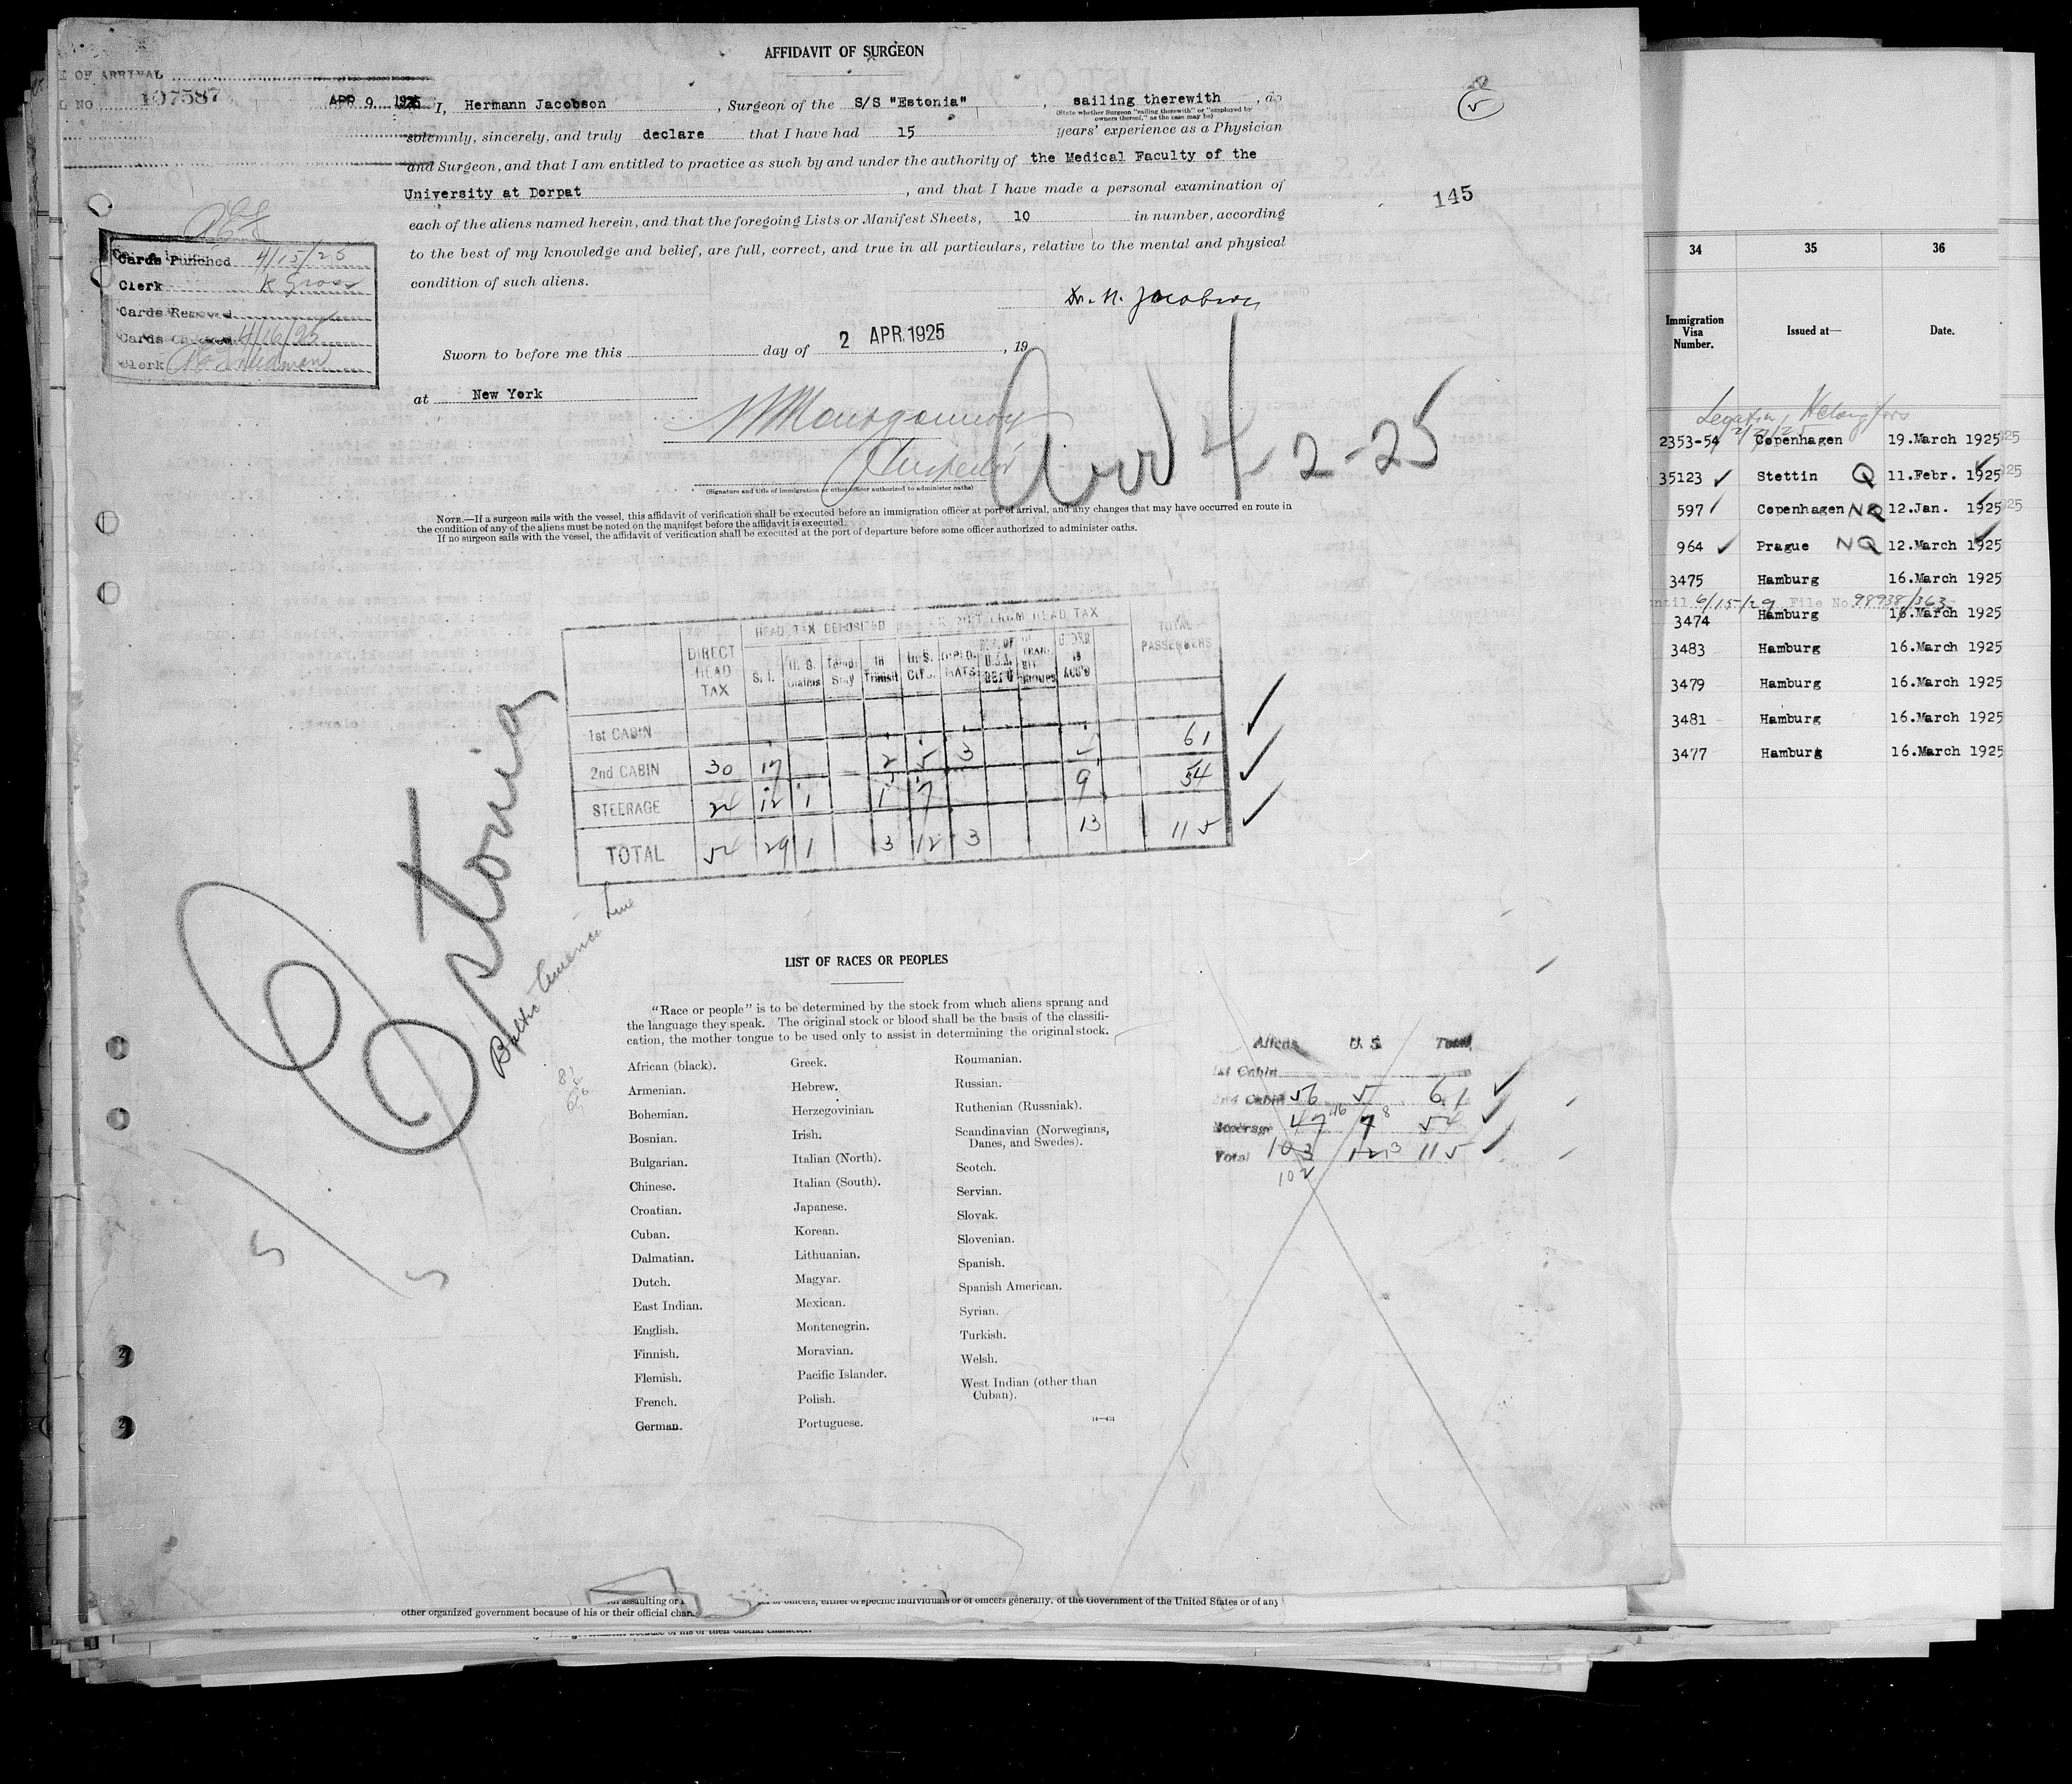 AFFIDAVIT OF SURGEON
E OF ARRIVAL
L NO. 107587 APR 9 1925
I, Hermann Jacobson, Surgeon of the S/S "Estonia", sailing therewith, do
(State whether Surgeon "sailing therewith" or "employed by
owners thereof," as the case may be)
solemnly, sincerely, and truly declare that I have had 15 years' experience as a Physician
and Surgeon, and that I am entitled to practice as such by and under the authority of the Medical Faculty of the
University at Dorpat, and that I have made a personal examination of
each of the aliens named herein, and that the foregoing Lists or Manifest Sheets, 10 in number, according
to the best of my knowledge and belief, are full, correct, and true in all particulars, relative to the mental and physical
condition of such aliens.
Dr. H. Jacobson
145
Cards Punched 4/15/25
Clerk K Gross
Cards Removed
Cards 4/16/25
Clerk
Sworn to before me this day of 2 APR. 1925, 19
at New York
Montgomery
Inspector
(Signature and title of immigration or other officer authorized to administer oaths)
Arr 4-2-25
NOTE.—If a surgeon sails with the vessel, this affidavit of verification shall be executed before an immigration officer at port of arrival, and any changes that may have occurred en route in
the condition of any of the aliens must be noted on the manifest before the affidavit is executed.
If no surgeon sails with the vessel, the affidavit of verification shall be executed at the port of departure before some officer authorized to administer oaths.
DIRECT HEAD TAX
HEAD TAX DEPOSITED
HEAD TAX
TOTAL PASSENGERS
S. I. In Transit U. S. Cit's.
1st CABIN
2nd CABIN 30 17 2 5 3 61
STEERAGE 24 12 1 1 7 9 54
TOTAL 54 29 1 3 12 3 13 115
Estonia
Baltic America Line
S/S
LIST OF RACES OR PEOPLES
"Race or people" is to be determined by the stock from which aliens sprang and
the language they speak. The original stock or blood shall be the basis of the classifi-
cation, the mother tongue to be used only to assist in determining the original stock.
African (black).
Armenian.
Bohemian.
Bosnian.
Bulgarian.
Chinese.
Croatian.
Cuban.
Dalmatian.
Dutch.
East Indian.
English.
Finnish.
Flemish.
French.
German.
Greek.
Hebrew.
Herzegovinian.
Irish.
Italian (North).
Italian (South).
Japanese.
Korean.
Lithuanian.
Magyar.
Mexican.
Montenegrin.
Moravian.
Pacific Islander.
Polish.
Portuguese.
Roumanian.
Russian.
Ruthenian (Russniak).
Scandinavian (Norwegians,
Danes, and Swedes).
Scotch.
Servian.
Slovak.
Slovenian.
Spanish.
Spanish American.
Syrian.
Turkish.
Welsh.
West Indian (other than
Cuban).
Aliens U. S. Total
1st Cabin
2nd Cabin 56 5 61
Steerage 47 46 7 8 54
Total 103 12 13 115
102
assaulting or
officers, either of specific individuals or of officers generally, of the Government of the United States or of any
other organized government because of his or their official char
34 35 36
Immigration Visa Number. Issued at— Date.
Legation, Helsingfors
2353-54 Copenhagen 19.March 1925
35123 Stettin Q 11.Febr. 1925
597 Copenhagen NQ 12.Jan. 1925
964 Prague NQ 12.March 1925
3475 Hamburg 16.March 1925
until 6/15/29 File No. 98938/363
3474 Hamburg 16.March 1925
3483 Hamburg 16.March 1925
3479 Hamburg 16.March 1925
3481 Hamburg 16.March 1925
3477 Hamburg 16.March 1925